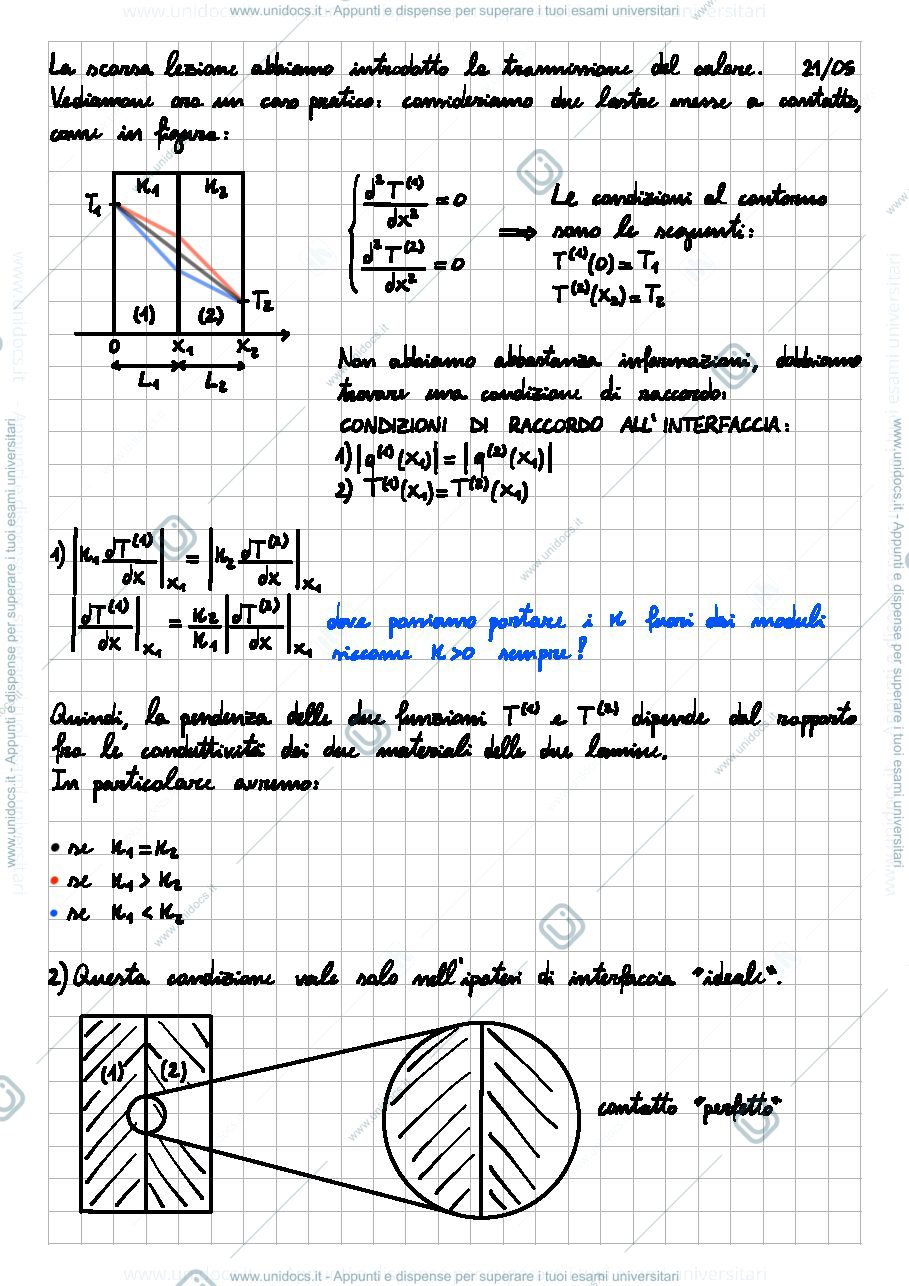 www.unidocs.it - Appunti e dispense per superare i tuoi esami universitari
La scorsa lezione abbiamo introdotto la trasmissione del calore. 21/05
Vediamone ora un caso pratico: consideriamo due lastre messe a contatto,
come in figura:
K₁ K₂
T₁
T₂
(1) (2)
0 x₁ x₂
L₁ L₂
d²T⁽¹⁾/dx² = 0
d²T⁽²⁾/dx² = 0
⟹ Le condizioni al contorno
sono le seguenti:
T⁽¹⁾(0) = T₁
T⁽²⁾(x₂) = T₂
Non abbiamo abbastanza informazioni, dobbiamo
trovare una condizione di raccordo:
CONDIZIONI DI RACCORDO ALL'INTERFACCIA:
1) |q⁽¹⁾(x₁)| = |q⁽²⁾(x₁)|
2) T⁽¹⁾(x₁) = T⁽²⁾(x₁)
1) |K₁ dT⁽¹⁾/dx|x₁ = |K₂ dT⁽²⁾/dx|x₁
|dT⁽¹⁾/dx|x₁ = K₂/K₁ |dT⁽²⁾/dx|x₁ dove possiamo portare i K fuori dai moduli
siccome K>0 sempre!
Quindi, la pendenza delle due funzioni T⁽¹⁾ e T⁽²⁾ dipende dal rapporto
fra le conduttività dei due materiali delle due lamine.
In particolare avremo:
• se K₁ = K₂
• se K₁ > K₂
• se K₁ < K₂
2) Questa condizione vale solo nell'ipotesi di interfaccia "ideale".
(1) (2)
contatto "perfetto"
www.unidocs.it - Appunti e dispense per superare i tuoi esami universitari
www.unidocs.it - Appunti e dispense per superare i tuoi esami universitari
www.unidocs.it - Appunti e dispense per superare i tuoi esami universitari